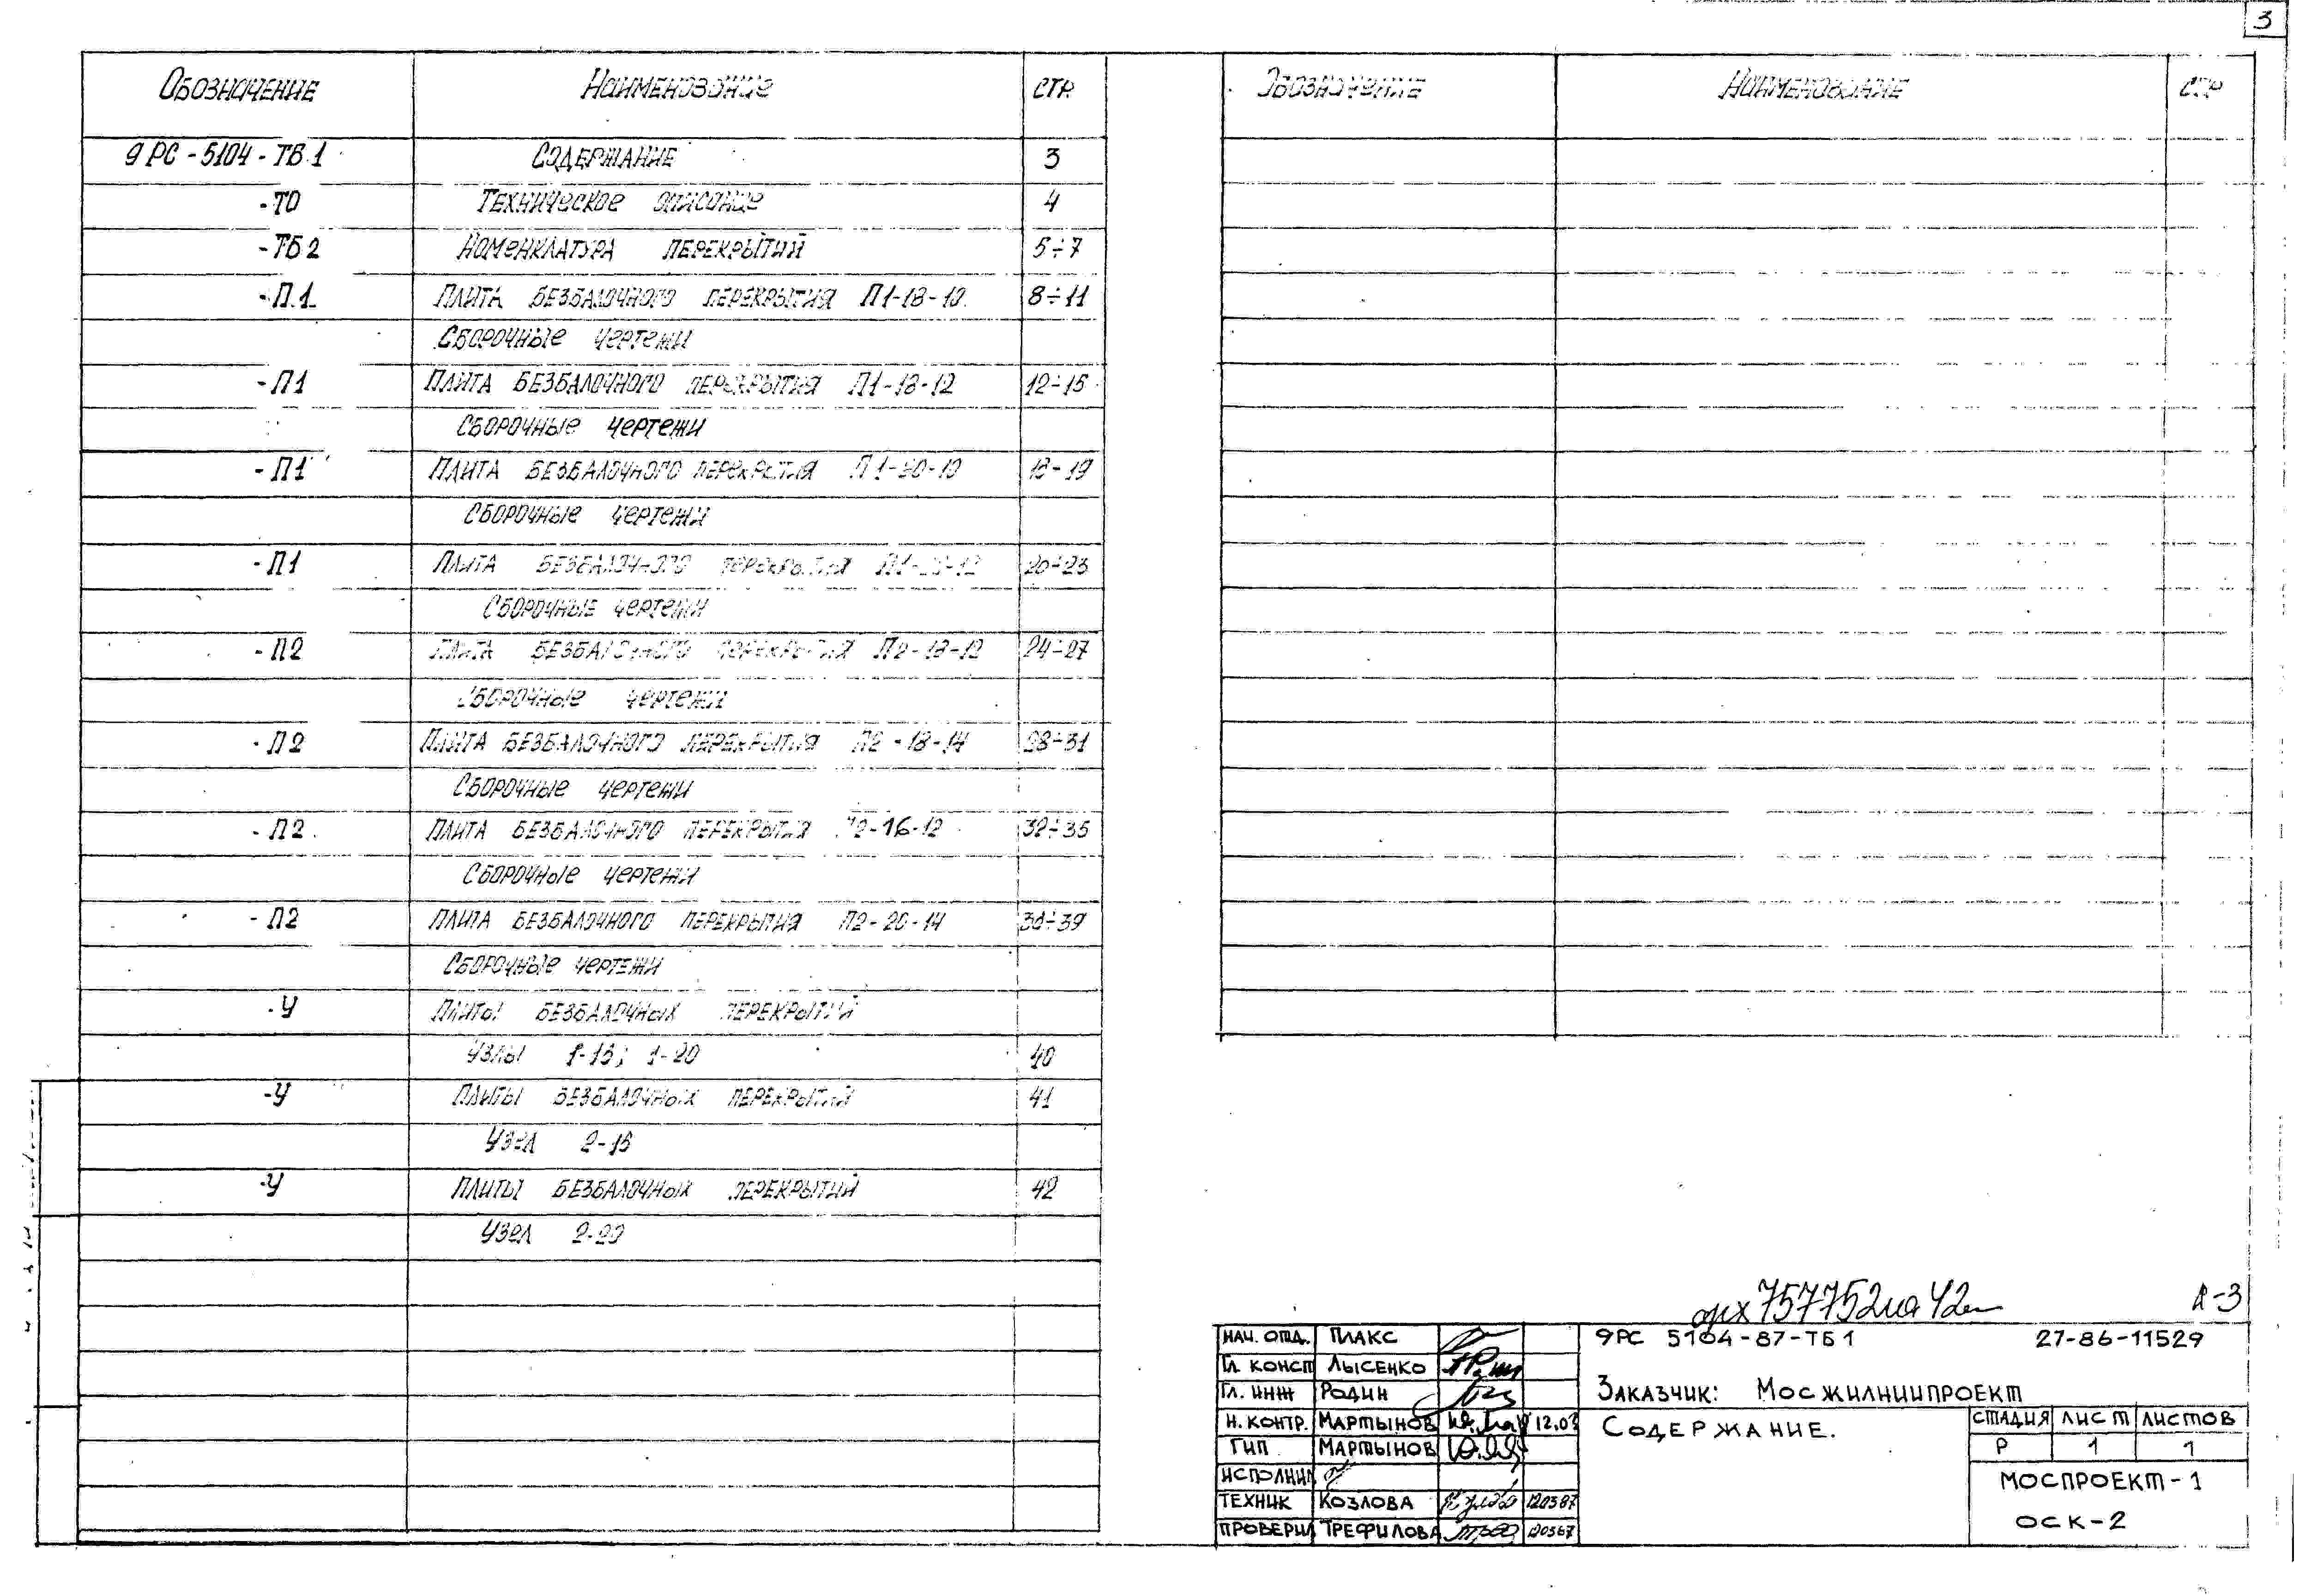 3
Обозначение Наименование стр.
9РС-5104-ТБ.1 Содержание 3
-ТО Техническое описание 4
-ТБ2 Номенклатура перекрытий 5÷7
-П.1 Плита безбалочного перекрытия П1-18-10 8÷11
Сборочные чертежи
-П1 Плита безбалочного перекрытия П1-18-12 12÷15
Сборочные чертежи
-П1 Плита безбалочного перекрытия П1-20-10 16-19
Сборочные чертежи
-П1 Плита безбалочного перекрытия П1-20-12 20÷23
Сборочные чертежи
-П2 Плита безбалочного перекрытия П2-18-12 24÷27
Сборочные чертежи
-П2 Плита безбалочного перекрытия П2-18-14 28÷31
Сборочные чертежи
-П2 Плита безбалочного перекрытия П2-16-12 32÷35
Сборочные чертежи
-П2 Плита безбалочного перекрытия П2-20-14 36÷39
Сборочные чертежи
-У Плиты безбалочных перекрытий
Узлы 1-18; 1-20 40
-У Плиты безбалочных перекрытий 41
Узел 2-18
-У Плиты безбалочных перекрытий 42
Узел 2-20
Обозначение Наименование стр
арх 757752 на 42л А-3
нач. отд. Плакс
Гл. консп Лысенко
Гл. инж Родин
н. контр. Мартынов 12.03
ГИП Мартынов
исполнил
техник Козлова 120387
проверил Трефилова 120387
9РС 5104-87-ТБ1 27-86-11529
Заказчик: Мосжилниипроект
Содержание.
стадия лист листов
Р 1 1
Моспроект-1
ОСК-2